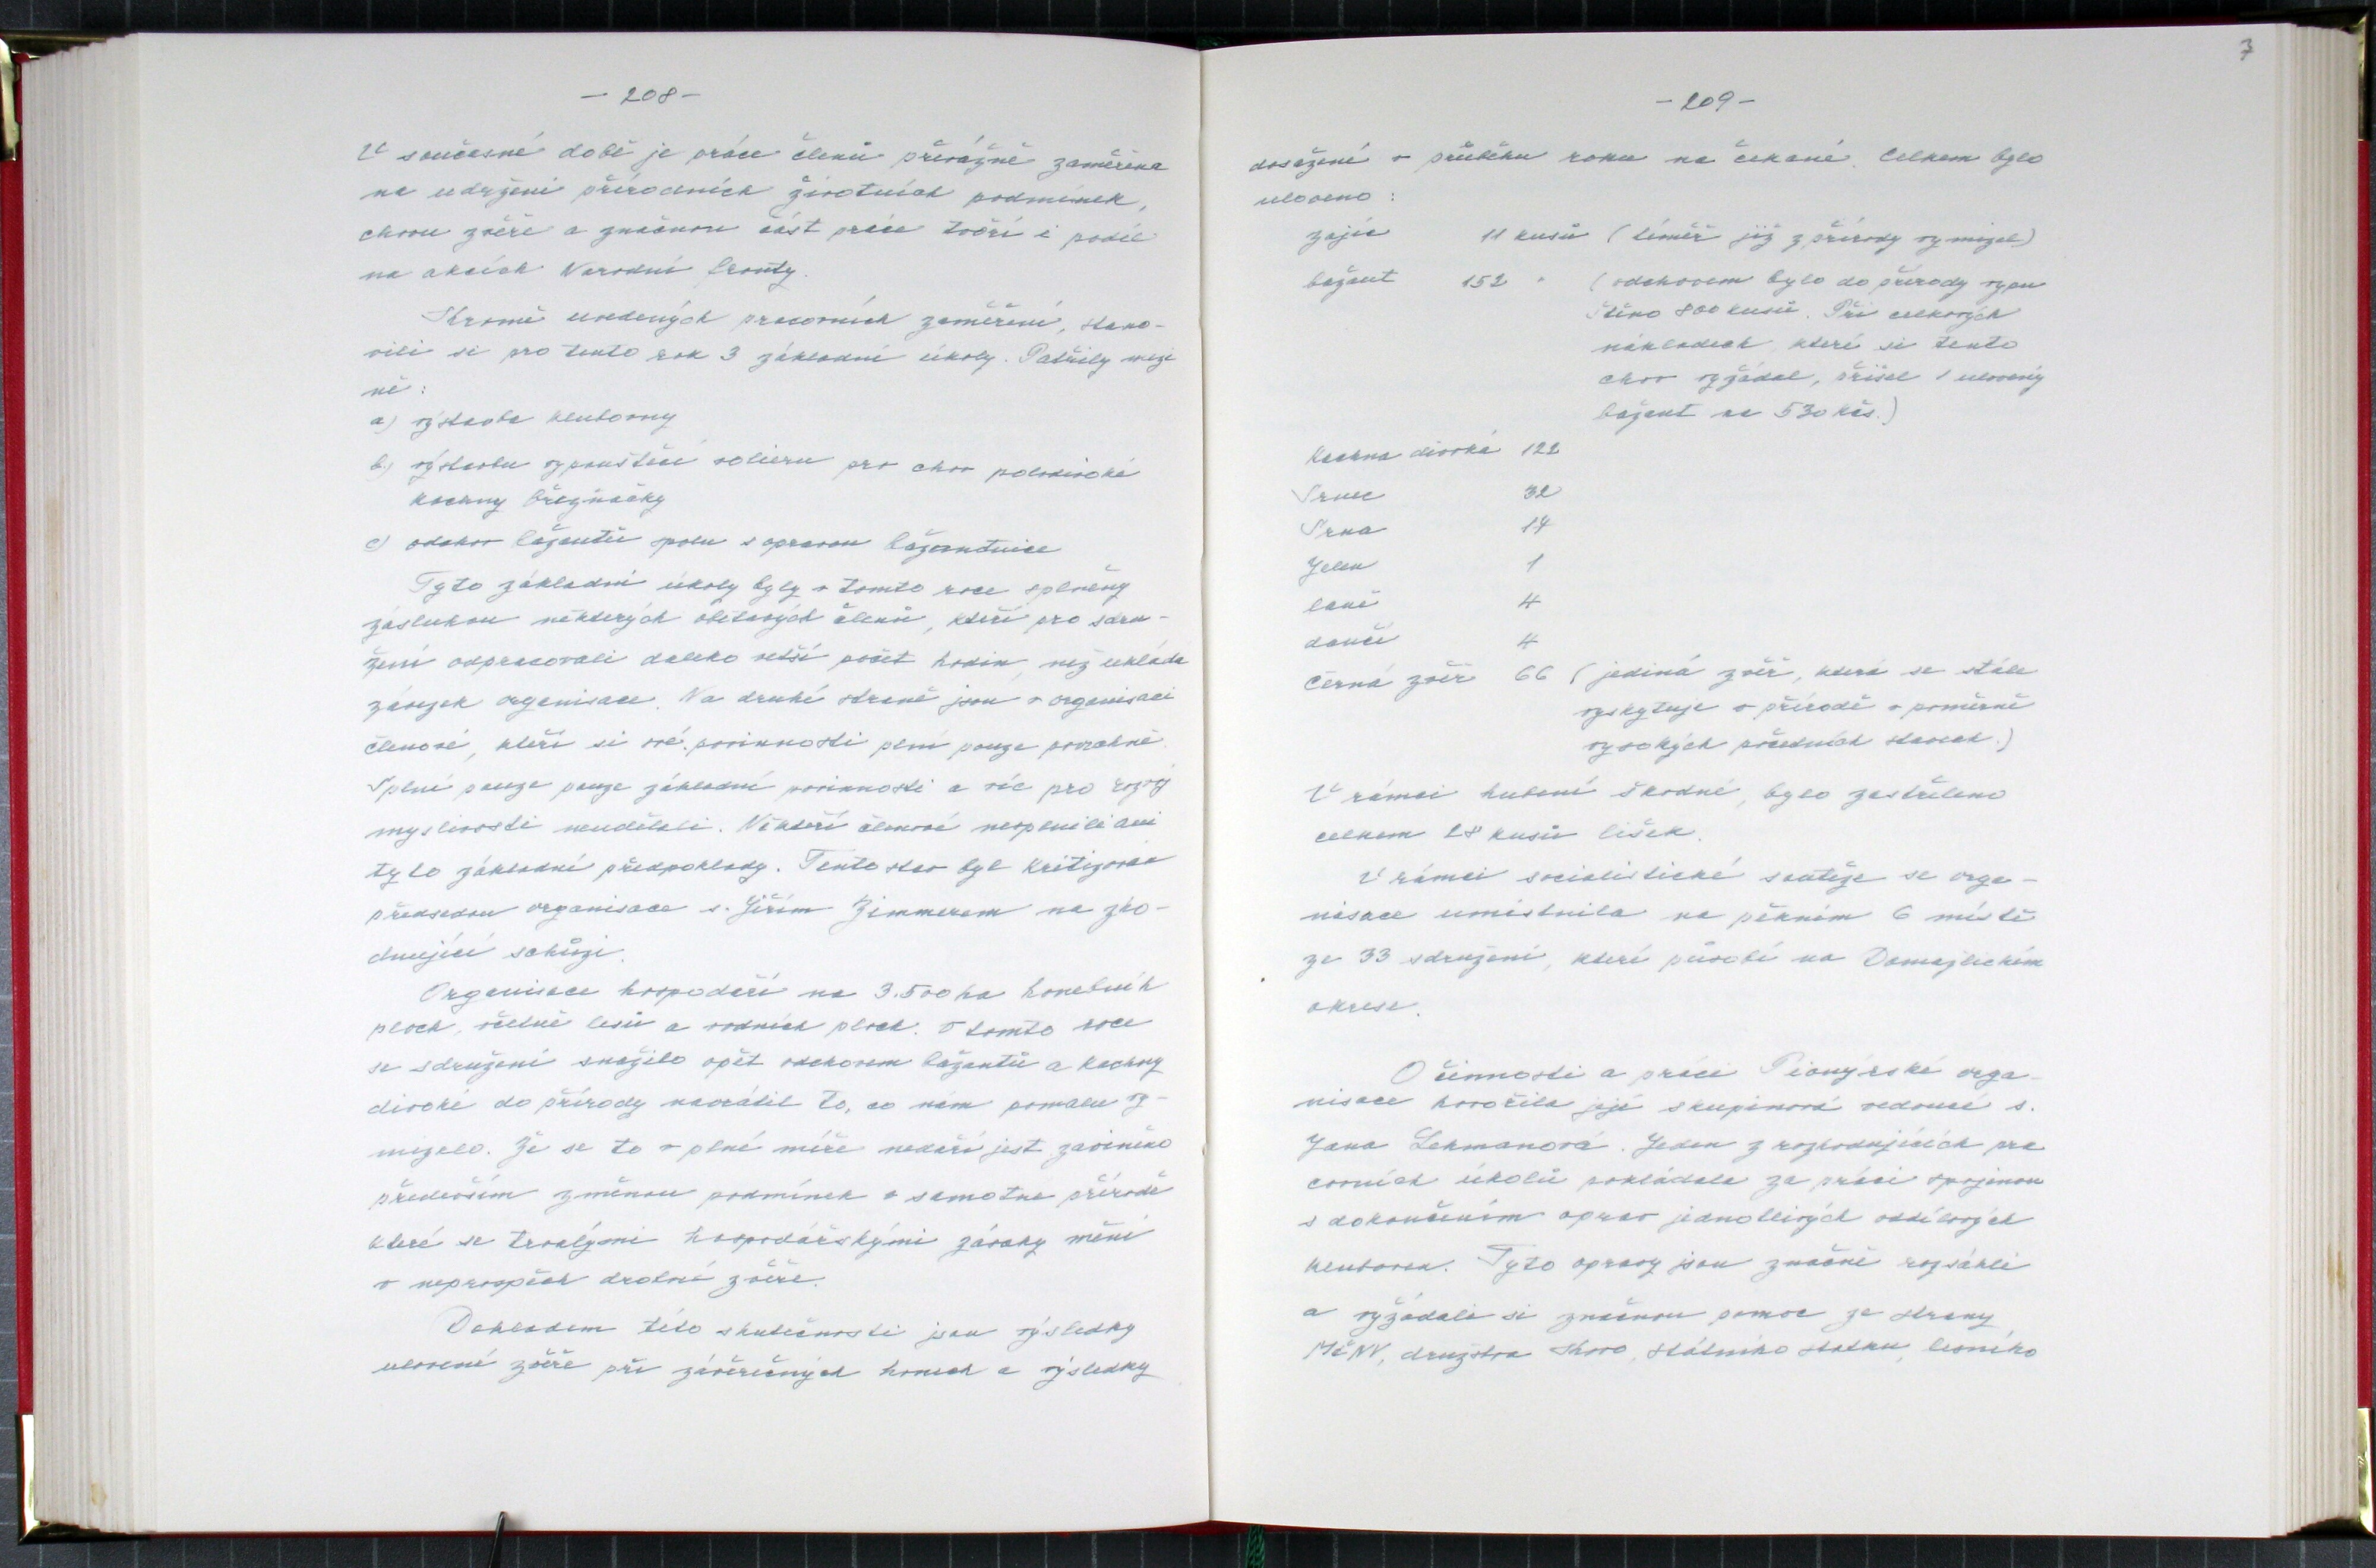 - 208 -
V současné době je práce členů převážně zaměřena
na udržení přírodních životních podmínek,
chovu zvěře a značnou část práce tvoří i podíl
na akcích Národní fronty.
Kromě uvedených pracovních zaměření, stano-
vili si pro tento rok 3 základní úkoly. Patřily mezi
ně:
a) výstavba klubovny
b) výstavbu vypouštěcí voliéru pro chov polodivoké
kachny březňačky
c) odchov bažantů spolu s opravou bažantnice
Tyto základní úkoly byly v tomto roce splněny
zásluhou některých obětavých členů, kteří pro sdru-
žení odpracovali daleko vetší počet hodin, než ukládá
závazek organisace. Na druhé straně jsou v organisaci
členové, kteří si své povinnosti plní pouze povrchně.
Splní pouze pouze základní povinnosti a víc pro rozvoj
myslivosti neudělali. Někteří členové nesplnili ani
tyto základní předpoklady. Tento stav byl kritizován
předsedou organisace s. Jiřím Zimmerem na zho-
dnující schůzi.
Organisace hospodaří na 3.500 ha honebních
ploch, včetně lesů a vodních ploch. V tomto roce
se sdružení snažilo opět odchovem bažantů a kachny
divoké do přírody navrátit to, co nám pomalu vy-
mizelo. Že se to v plné míře nedaří jest zaviněno
především změnou podmínek v samotné přírodě
které se trvalými hospodářskými zásahy mění
v neprospěch drobné zvěře.
Dokladem této skutečnosti jsou výsledky
ulovené zvěře při závěrečných honech a výsledky
3
- 209 -
dosažení v průběhu roku na čekané. Celkem bylo
uloveno:
zajíc 11 kusů (téměř již z přírody vymizel)
bažant 152 " (odchovem bylo do přírody vypu
štěno 800 kusů. Při celkových
nákladech, které si tento
chov vyžádal, přišel 1 ulovený
bažant na 530 kčs.)
Kachna divoká 122
Srnec 32
Srna 14
Jelen 1
laně 4
daněl 4
Černá zvěř 66 (jediná zvěř, která se stále
vyskytuje v přírodě v poměrně
vysokých početních stavech.)
V rámci hubení škodné, bylo zastřeleno
celkem 28 kusů lišek.
V rámci socialistické soutěže se orga-
nisace umístnila na pěkném 6 místě
ze 33 sdružení, které působí na Domažlickém
okrese.
O činnosti a práci Pionýrské orga-
nisace hovořila její skupinová vedoucí s.
Jana Lehmanová. Jeden z rozhodujících pra
covních úkolů pokládala za práci spojenou
s dokončením oprav jednotlivých oddílových
kluboven. Tyto opravy jsou značně rozsáhlé
a vyžádali si značnou pomoc ze strany
MěNV, družstva Kovo, státního statku, lesního